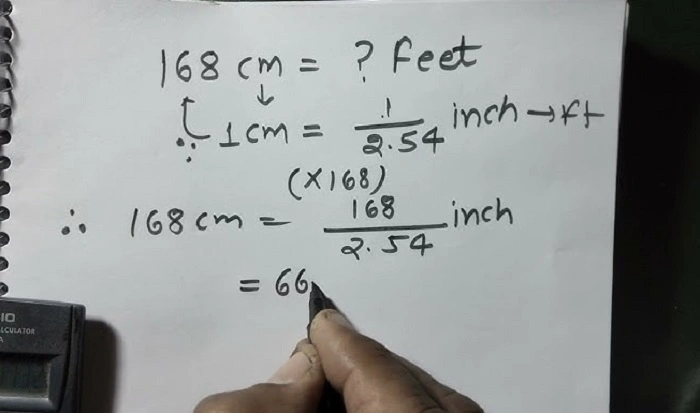 168 cm = ? feet
∵ 1 cm = 1/2.54 inch → ft
(×168)
∴ 168 cm = 168/2.54 inch
= 66